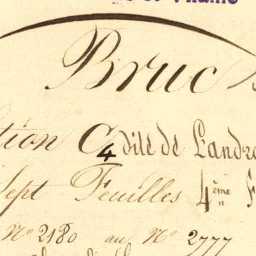 Bruc
tion C4 dite de Landre
Sept Feuilles 4ème F
N° 2180 au N° 2777